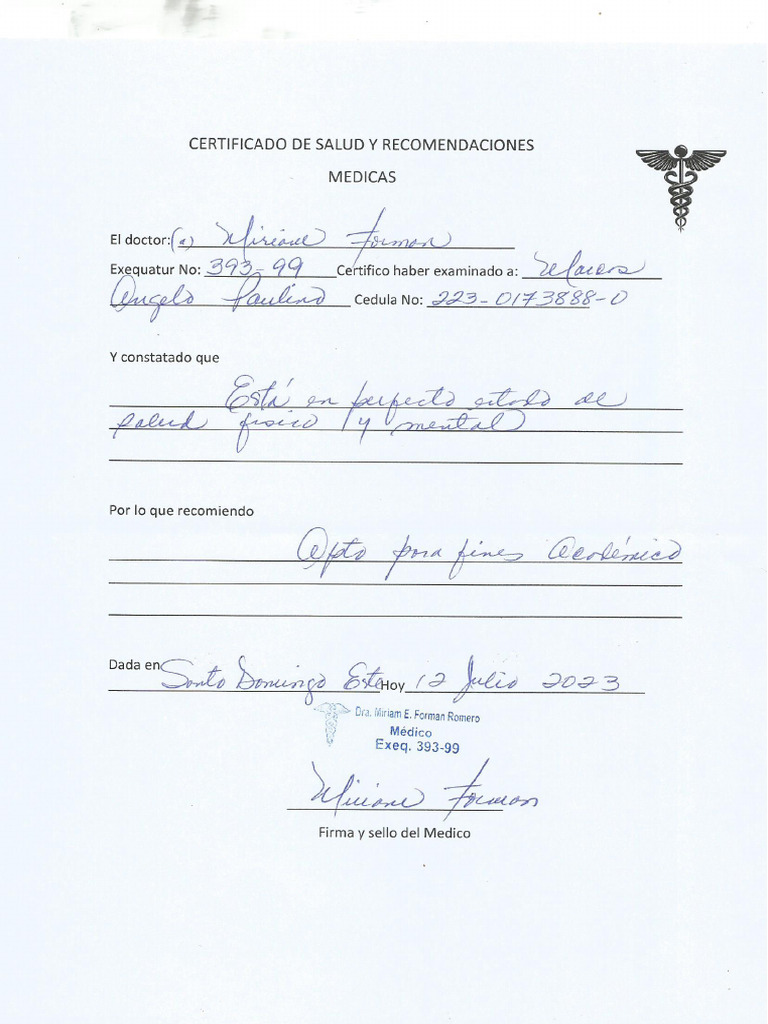 CERTIFICADO DE SALUD Y RECOMENDACIONES
MEDICAS
El doctor:(a) Miriam Forman
Exequatur No: 393-99 Certifico haber examinado a: Marcos
Angelo Paulino Cedula No: 223-0173888-0
Y constatado que
Está en perfecto estado de
salud fisico y mental
Por lo que recomiendo
Apto para fines Académico
Dada en Santo Domingo Este Hoy 12 Julio 2023
Dra. Miriam E. Forman Romero
Médico
Exeq. 393-99
Miriam Forman
Firma y sello del Medico